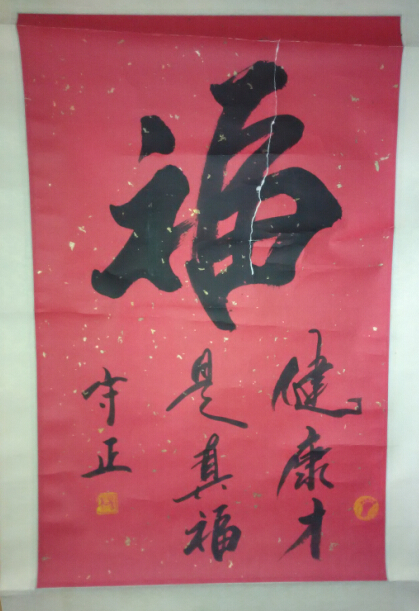 福
健康才
是真福
守正